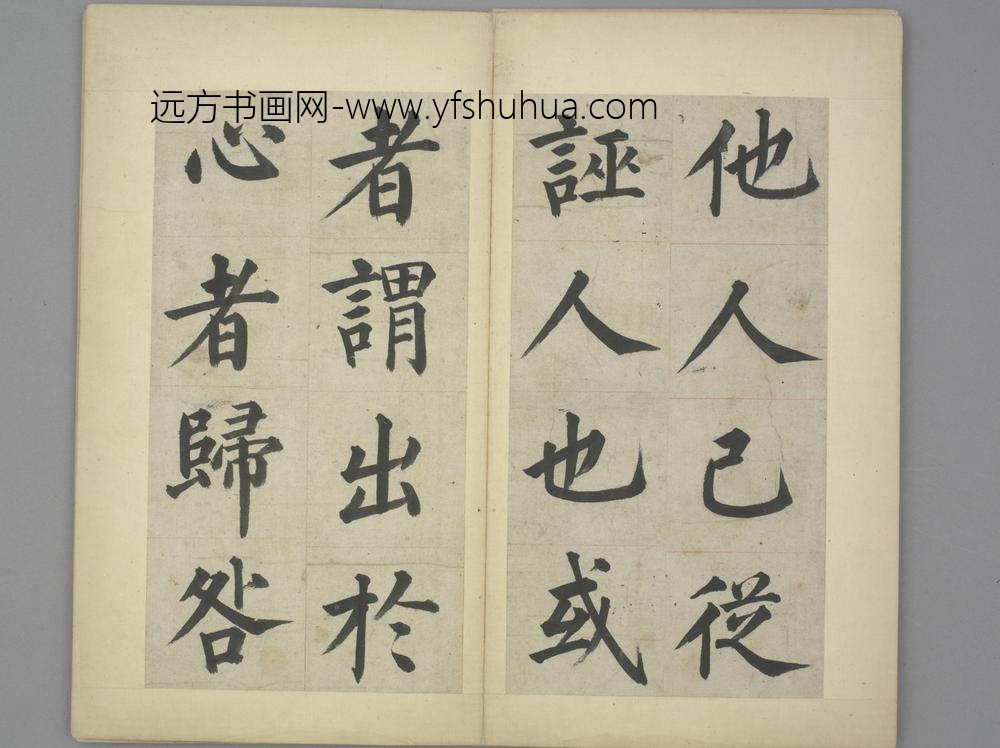 远方书画网-www.yfshuhua.com
他人己從
誣人也或
者謂出於
心者歸咎